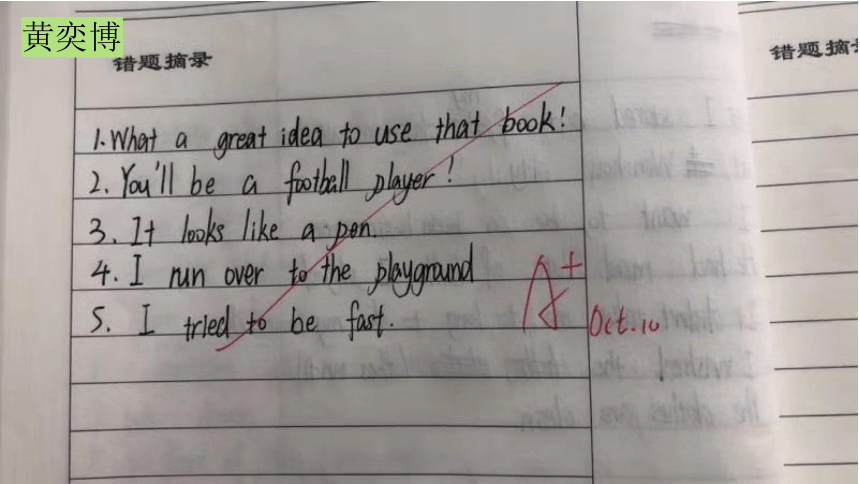 黄奕博
错题摘录
错题摘
1. What a great idea to use that book!
2. You'll be a football player!
3. It looks like a pen.
4. I run over to the playground
5. I tried to be fast.
A+
Oct. 10